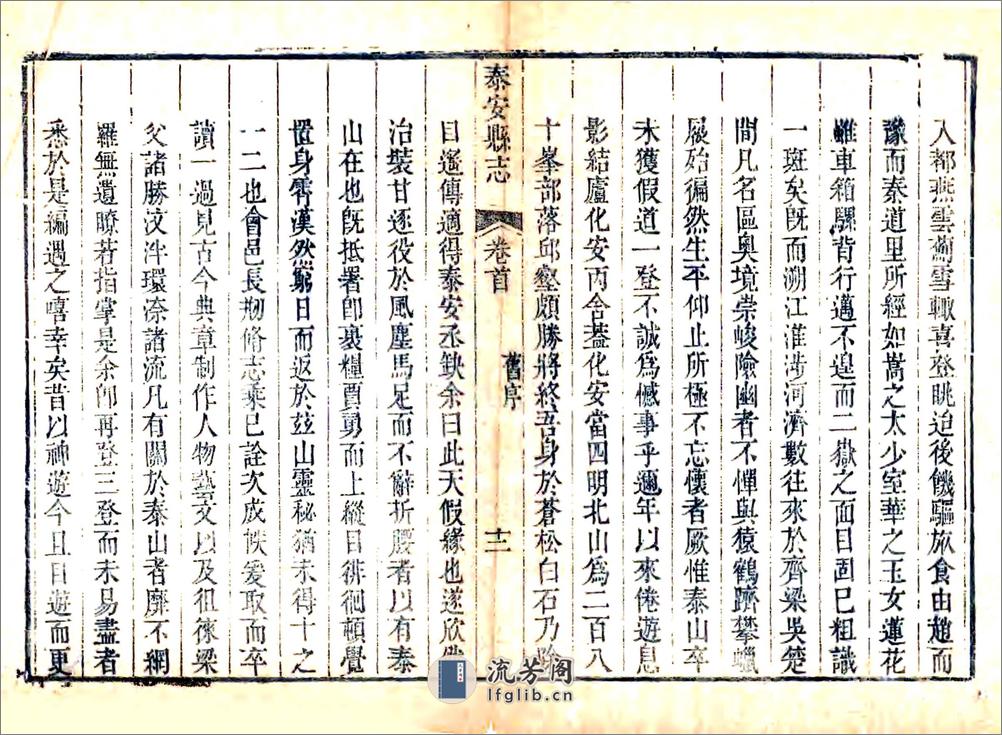 入都燕雲薊雪輙喜登眺迫後饑驅旅食由趙而
豫而秦道里所經如嵩之太少室華之玉女蓮花
雖車箱驟背行邁不遑而二嶽之面目固已粗識
一斑矣旣而溯江淮涉河濟數往來於齊梁吳楚
間凡名區奧境崇峻險幽者不憚與猿鶴躋攀蠟
屐始徧然生平仰止所極不忘懷者厥惟泰山卒
未獲假道一登不誠爲憾事乎邇年以來倦遊息
影結廬化安丙舍葢化安當四明北山爲二百八
十峯部落邱壑頗勝將終吾身於蒼松白石乃除
泰安縣志
卷首
舊序
十二
目遙傳適得泰安丞缺余曰此天假緣也遂欣然
治裝甘逐役於風塵馬足而不辭折腰者以有泰
山在也旣抵署卽裹糧賈勇而上縱目徘徊頓覺
置身霄漢然窮日而返於玆山靈秘猶未得十之
一二也會邑長刱脩志乘已詮次成帙爰取而卒
讀一過見古今典章制作人物藝文以及徂徠梁
父諸勝汶泮環柰諸流凡有關於泰山者靡不網
羅無遺瞭若指掌是余卽再登三登而未易盡者
悉於是編遇之嘻幸矣昔以神遊今且目遊而更
流芳阁
lfglib.cn